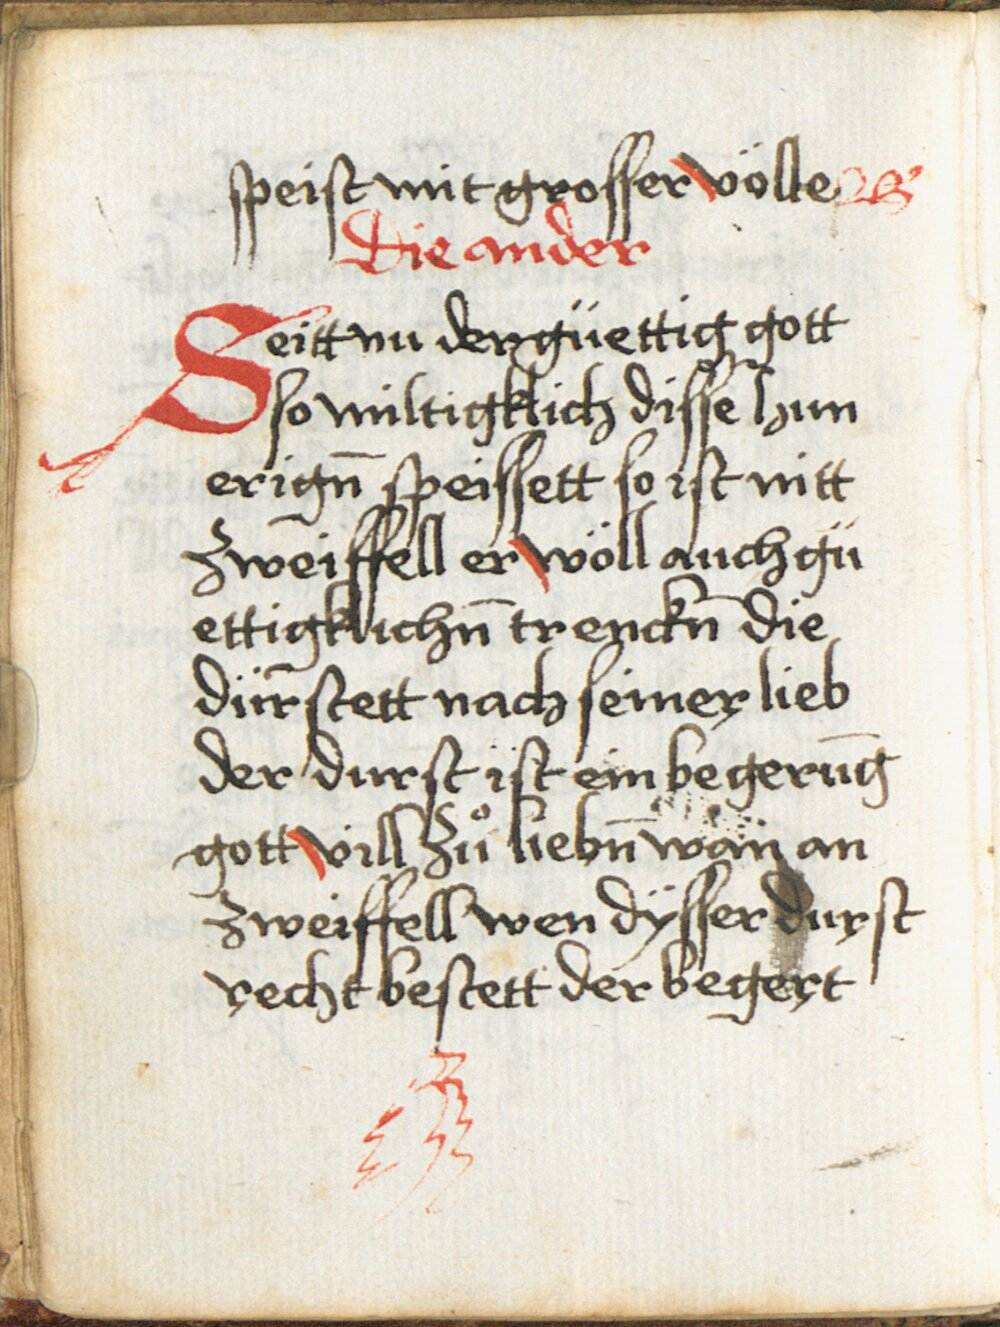 speist mit grosser völle
Die ander
Seitt nu der güettig gott
so miltigklich disse hun
erign̄ speissett so ist nitt
zweiffell er wöll auch gü
ettigklichn̄ trenckn̄ die
dürstett nach seiner lieb
der durst ist ein begerūg
gott vill zů liebn̄ wan an
zweiffell wen dÿsser durst
recht bestett der begert